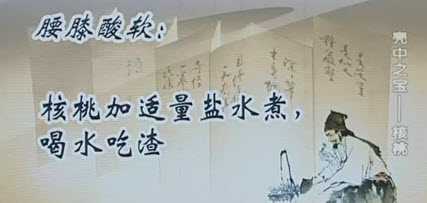 腰膝酸软:
核桃加适量盐水煮,
喝水吃渣
壳中之宝——核桃